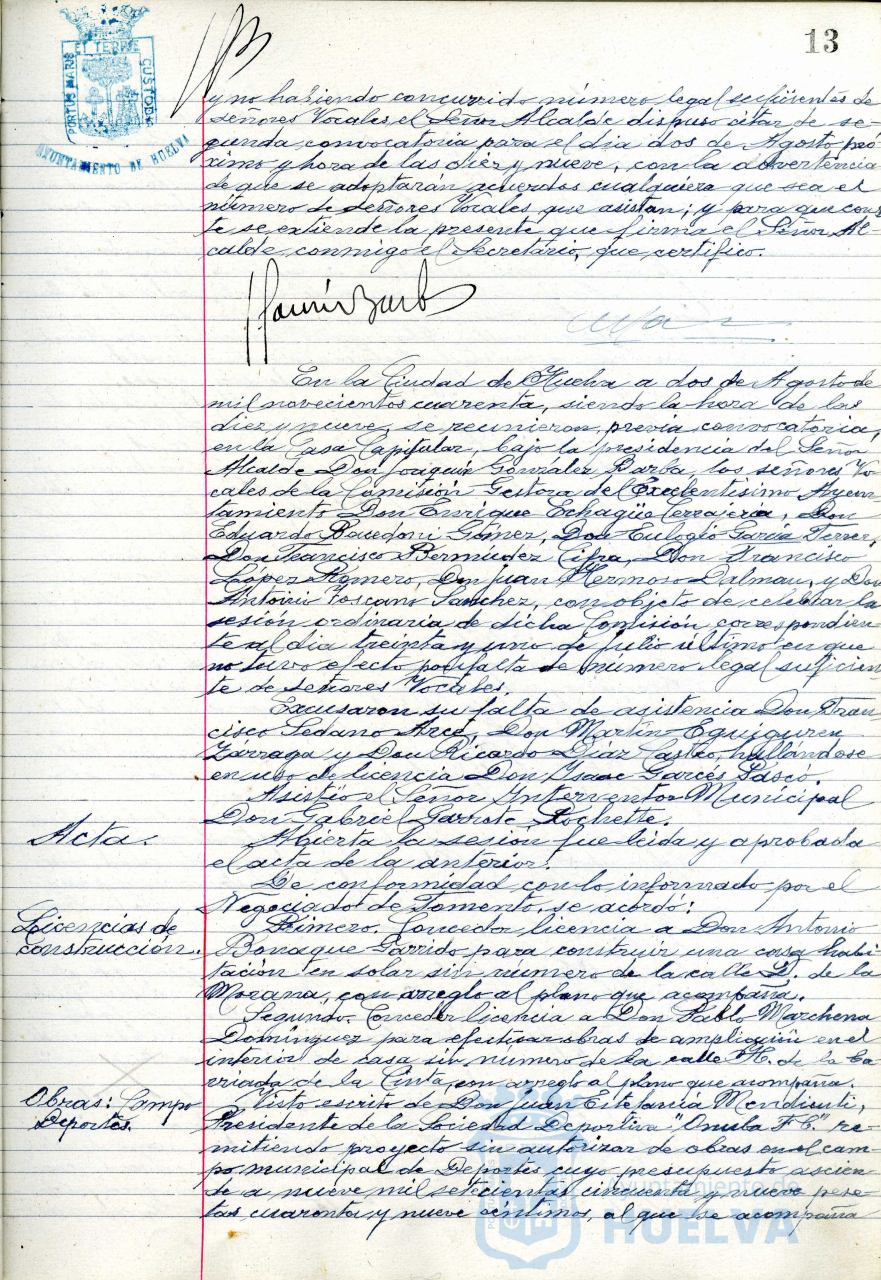 13
PORTUS MARIS ET TERRE CUSTODIA
AYUNTAMIENTO DE HUELVA
y no habiendo concurrido número legal suficientes de
señores Vocales el Señor Alcalde dispuso citar de se-
gunda convocatoria para el dia dos de Agosto pró
ximo y hora de las diez y nueve, con la advertencia
de que se adoptarán acuerdos cualquiera que sea el
número de señores Vocales que asistan; y para que cons
te se extiende la presente que firma el Señor Al-
calde conmigo el Secretario, que certifico.
En la Ciudad de Huelva a dos de Agosto de
mil novecientos cuarenta, siendo la hora de las
diez y nueve, se reunieron, previa convocatoria,
en la Casa Capitular, bajo la presidencia del Señor
Alcalde Don Joaquín González Barba, los señores Vo-
cales de la Comisión Gestora del Excelentísimo Ayun-
tamiento Don Enrique Echagüe Don
Eduardo Gómez, Don Eulogio García Ferrer,
Don Francisco Bermudez Cifra, Don Francisco
López Romero, Don Juan Hermoso Dalmau, y Don
Antonio Toscano Sanchez, con objeto de celebrar la
sesión ordinaria de dicha Comisión correspondien-
te al dia treinta y uno de Julio último en que
no tuvo efecto por falta de número legal suficien-
te de señores Vocales.
Excusaron su falta de asistencia Don Fran
cisco Sedano Arce, Don Martín Eguiguren
Zarraga y Don Ricardo Díaz Castro, hallándose
en uso de licencia Don Isaac Garcés Pascó.
Asistió el Señor Interventor Municipal
Don Gabriel Garrote Rochette.
Acta.
Abierta la sesión fue leida y aprobada
el acta de la anterior.
De conformidad con lo informado por el
Negociado de Fomento, se acordó:
Licencias de
construcción.
Primero. Conceder licencia a Don Antonio
Bonaque Garrido para construir una casa habi
tación en solar sin número de la calle L. de la
Morana, con arreglo al plano que acompaña.
Segundo. Conceder licencia a Don Pablo Marchena
Dominguez para efectuar obras de ampliación en el
interior de casa sin número de la calle H. de la Ba
rriada de la Cinta, con arreglo al plano que acompaña.
Obras: Campo
Deportes.
Visto escrito de Don Juan Mendicuti,
Presidente de la Sociedad Deportiva "Onuba F.C." re-
mitiendo proyecto sin autorizar de obras en el cam-
po municipal de Deportes cuyo presupuesto ascien-
de a nueve mil setecientas cincuenta y nueve pese-
tas cuarenta y nueve céntimos, al que se acompaña
Ayuntamiento de
HUELVA